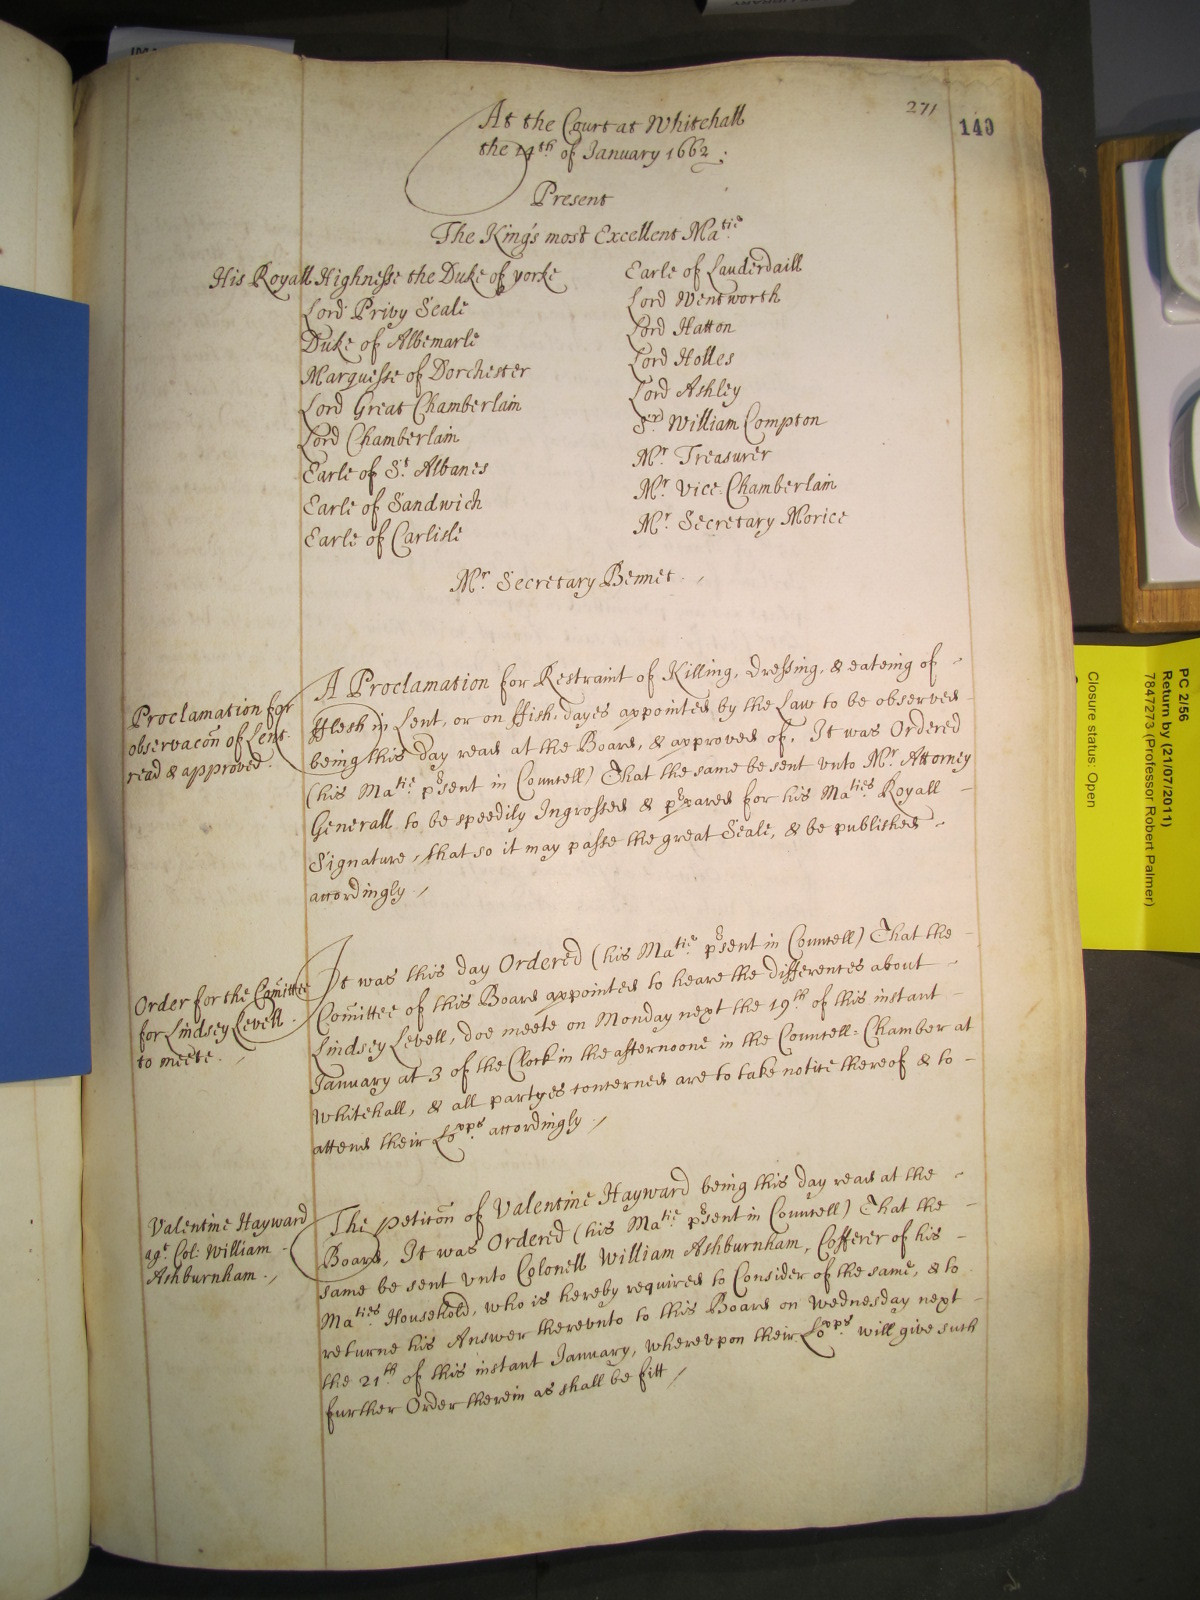 271
140
At the Court at Whitehall
the 14th of January 1662.
Present
The King's most Excellent Matie
His Royall Highnesse the Duke of yorke
Lord Privy Seale
Duke of Albemarle
Marquesse of Dorchester
Lord Great Chamberlain
Lord Chamberlain
Earle of St Albanes
Earle of Sandwich
Earle of Carlisle
Earle of Lauderdaill
Lord Wentworth
Lord Hatton
Lord Holles
Lord Ashley
Sr William Compton
Mr Treasurer
Mr Vice-Chamberlain
Mr Secretary Morice
Mr Secretary Bennet.
Proclamation for
observacõn of Lent
read & approved.
A Proclamation for Restraint of Killing, Dressing, & eateing of
fflesh in Lent, or on ffish-dayes appointed by the Law to be observed
being this day read at the Board, & approved of, It was Ordered
(his Matie prsent in Councell) That the same be sent vnto Mr Attorney
Generall to be speedily Ingrossed & prpared for his Maties Royall
Signature, that so it may passe the great Seale, & be published
accordingly
Order for the Comittee
for Lindsey Levell
to meete.
It was this day Ordered (his Matie prsent in Councell) That the
Comittee of this Board appointed to heare the differences about
Lindsey Levell, doe meete on Monday next the 19th of this instant
January at 3 of the Clock in the afternoone in the Councell-Chamber at
Whitehall, & all partyes concerned are to take notice thereof & to
attend their Lopps accordingly
Valentine Hayward
agt Col: William
Ashburnham.
The peticõn of Valentine Hayward being this day read at the
Board, It was Ordered (his Matie prsent in Councell) That the
same be sent vnto Colonell William Ashburnham, Cofferer of his
Maties Household, who is hereby required to Consider of the same, & to
returne his Answer therevnto to this Board on Wednesday next
the 21th of this instant January, wherevpon their Lopps will give such
further Order therein as shall be fitt
PC 2/56
Return by (21/07/2011)
7847273 (Professor Robert Palmer)
Closure status: Open